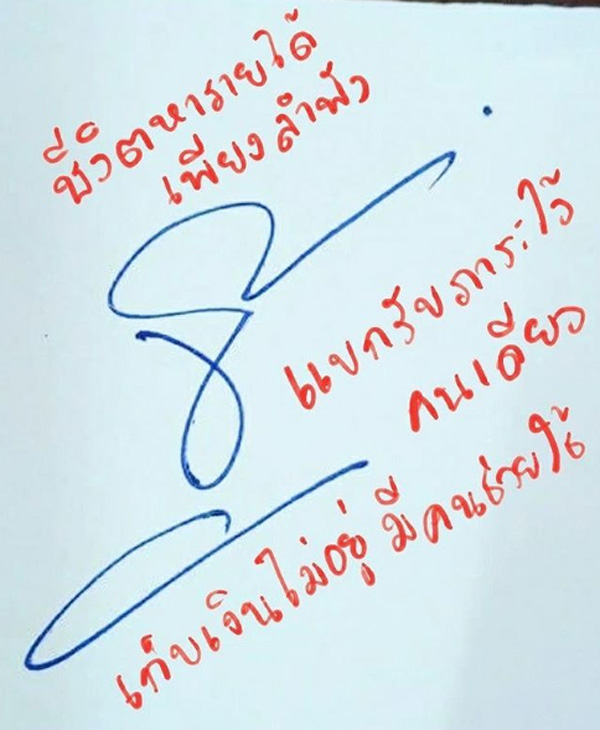 ชีวิตหารายได้
เพียงลำพัง
แบกรับภาระไว้
คนเดียว
เก็บเงินไม่อยู่ มีคนช่วยใช้